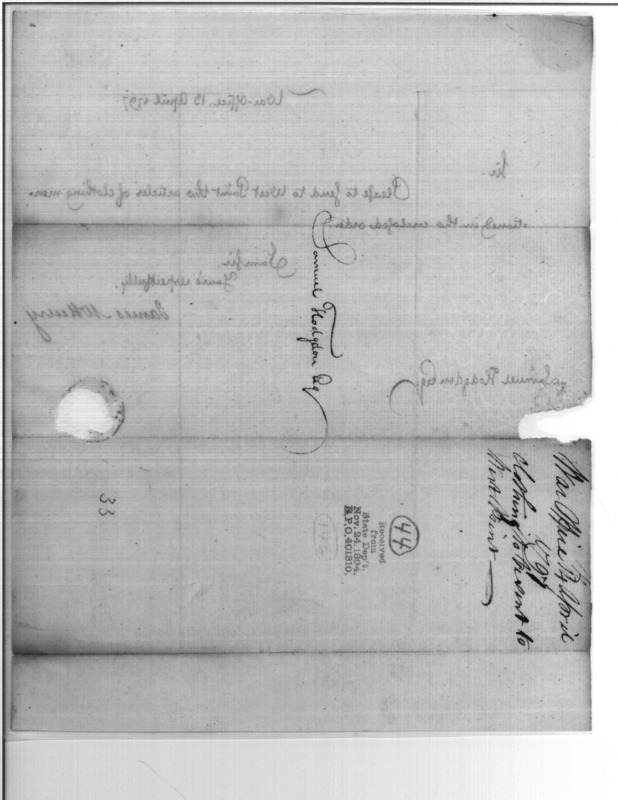 War-Office, 13 April 1797
Sir.
Please to send to West Point the articles of clothing men-
-tioned in the enclosed order.
I am Sir
Yours respectfully,
James McHenry
Samuel Hodgdon Esq
Samuel Hodgdon Esq
War Office 14 April
1797
Clothing to be sent to
West Point
44
Received
from
State Dep't.
Nov. 24. 1894.
R.P.O. 401310.
33